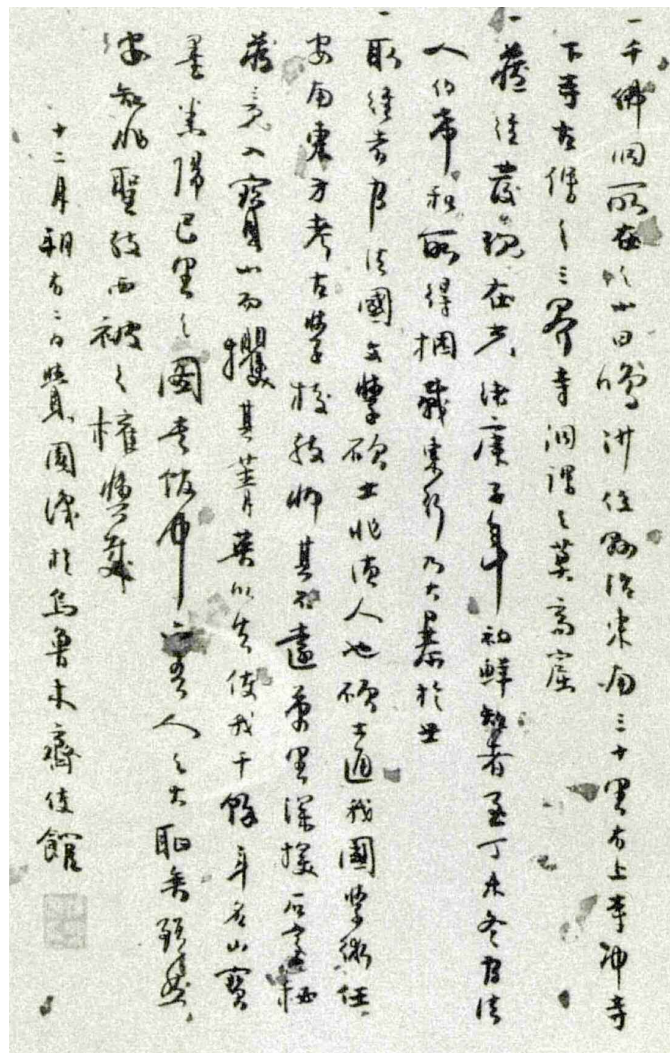 一千佛洞所在於小田鳴卅任縣治東南三十里有上寺中寺
下寺古僧之三界寺洞謂之莫高窟
一藏經發現在光緒庚子年初鮮知者至丁未冬為法
人伯希和所得捆載東行乃大暴於世
一取經者乃法國文學碩士非德人也碩士通我國學術任
安南東方考古學校教師其不遠萬里深探石室秘
藏竟入寶山而攫其菁英以去使我千餘年名山寶
墨光陽巴里之圖書館中吾人之大恥無疑然
安知非聖教西被之權輿哉
十二月朔方二日贊園識於烏魯木齊使館